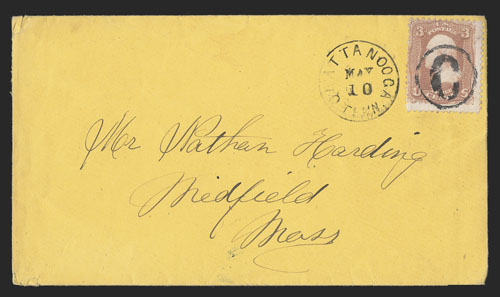 ATTANOOGA
MAY
10
TENN.
3 3
C
Mr Nathan Harding
Medfield
Mass